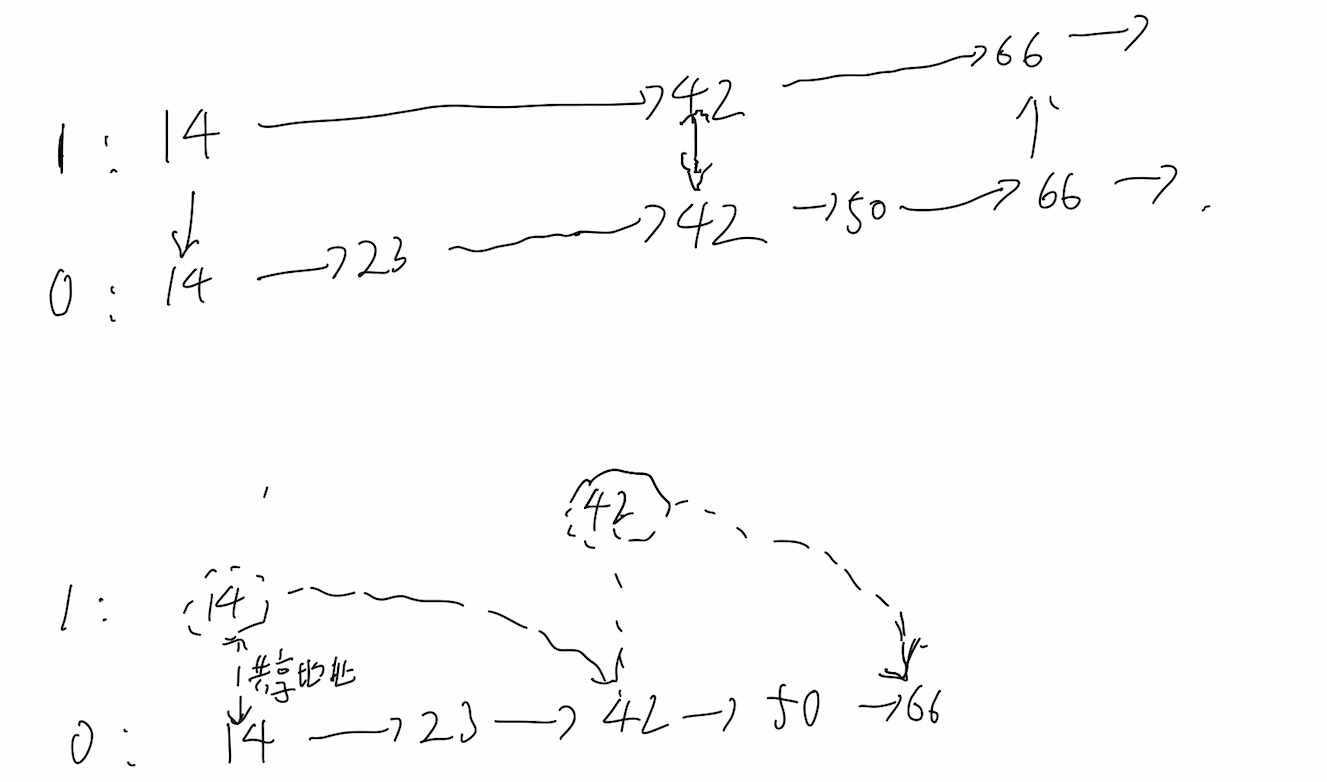 1: 14 → 42 → 66 →
0: 14 → 23 → 42 → 50 → 66 →
42
1: 14
共享地址
0: 14 → 23 → 42 → 50 → 66